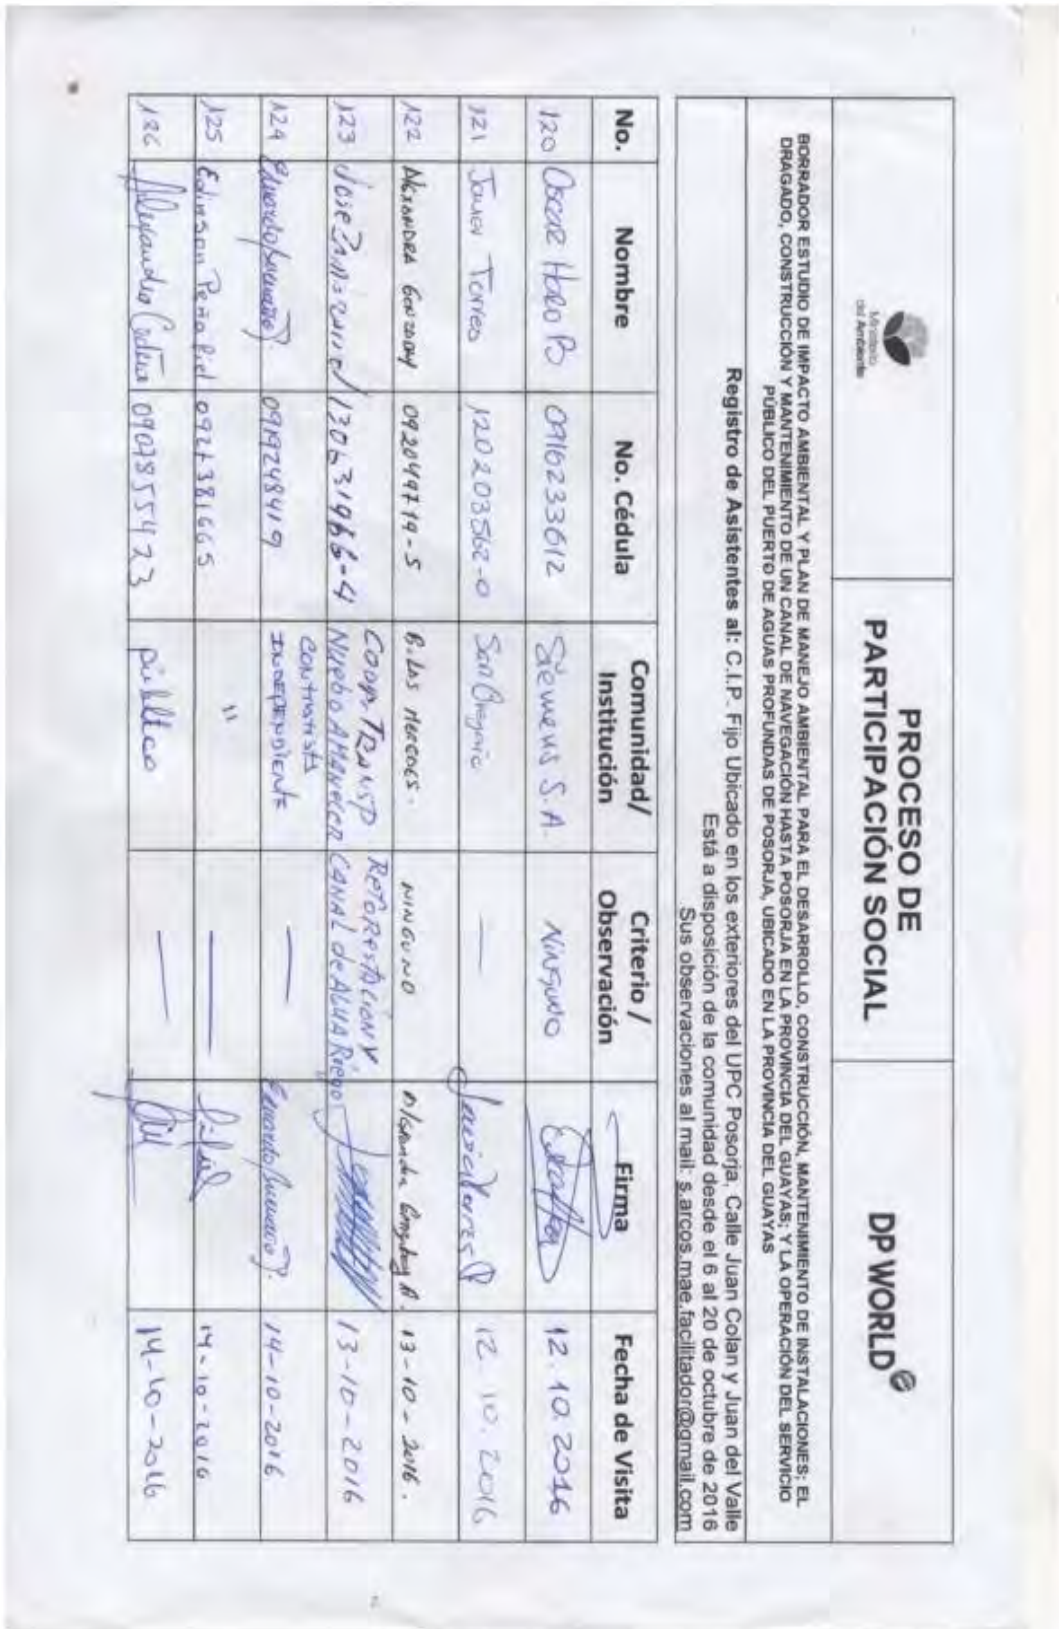 Ministerio
del Ambiente
PROCESO DE
PARTICIPACIÓN SOCIAL
DP WORLD
BORRADOR ESTUDIO DE IMPACTO AMBIENTAL Y PLAN DE MANEJO AMBIENTAL PARA EL DESARROLLO, CONSTRUCCIÓN, MANTENIMIENTO DE INSTALACIONES; EL
DRAGADO, CONSTRUCCIÓN Y MANTENIMIENTO DE UN CANAL DE NAVEGACIÓN HASTA POSORJA EN LA PROVINCIA DEL GUAYAS; Y LA OPERACIÓN DEL SERVICIO
PÚBLICO DEL PUERTO DE AGUAS PROFUNDAS DE POSORJA, UBICADO EN LA PROVINCIA DEL GUAYAS
Registro de Asistentes al: C.I.P. Fijo Ubicado en los exteriores del UPC Posorja, Calle Juan Colan y Juan del Valle
Está a disposición de la comunidad desde el 6 al 20 de octubre de 2016
Sus observaciones al mail: s.arcos.mae.facilitador@gmail.com
No. Nombre No. Cédula Comunidad/ Institución Criterio / Observación Firma Fecha de Visita
120 Oscar Haro B 0916233612 Siemens S.A. Ninguno 12.10.2016
121 Javier Torres 120203562-0 San Gregorio — Javier Torres 12.10.2016
122 Alexandra 092049719-5 B. Las Mercedes. NINGUNO Alexandra 13-10-2016.
123 Jose 130631966-4 Coop. TRANSP Nuebo AMANECER REFORESTACION Y CANAL de AGUA Riego 13-10-2016
124 Eduardo 0919248419 Contratista INDEPENDIENTE — Eduardo 14-10-2016
125 Edinson Peñafiel 0927381665 " — 14-10-2016
126 Alexandra 0907855423 público — 14-10-2016